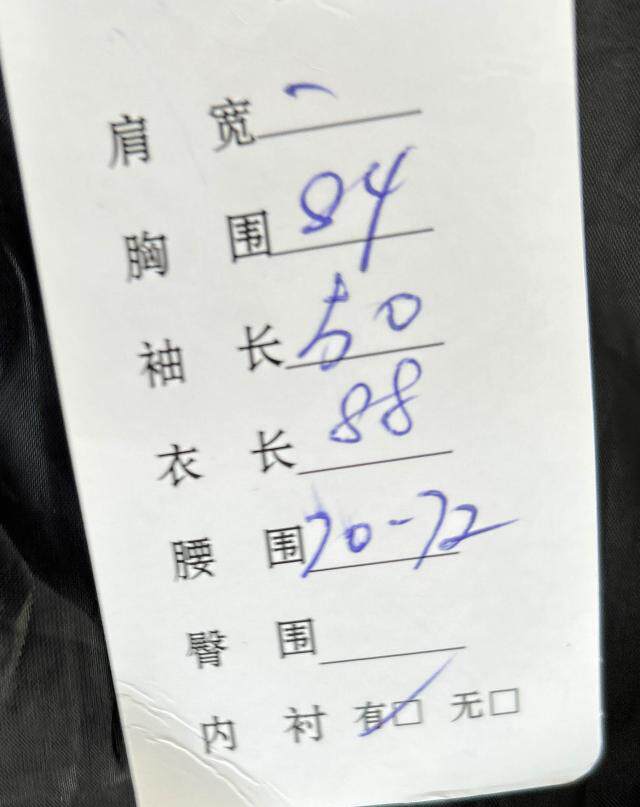 肩 宽 -
胸 围 84
袖 长 50
衣 长 88
腰 围 70-72
臀 围
内 衬 有☑ 无□